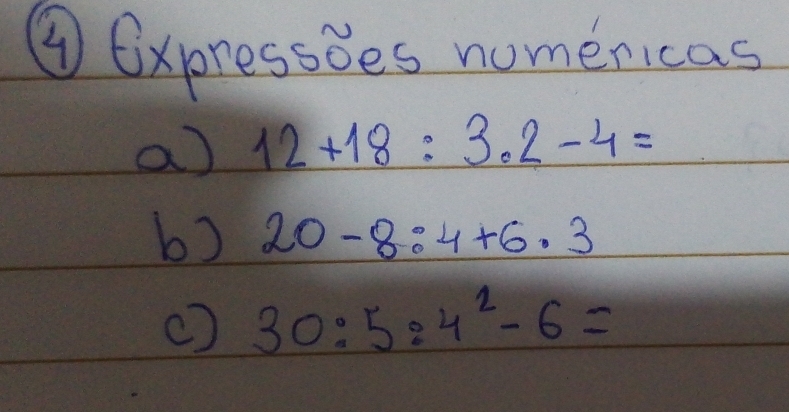 ④ Expressões numéricas
a) 12+18 : 3.2-4=
b) 20-8:4+6.3
c) 30:5:4²-6=